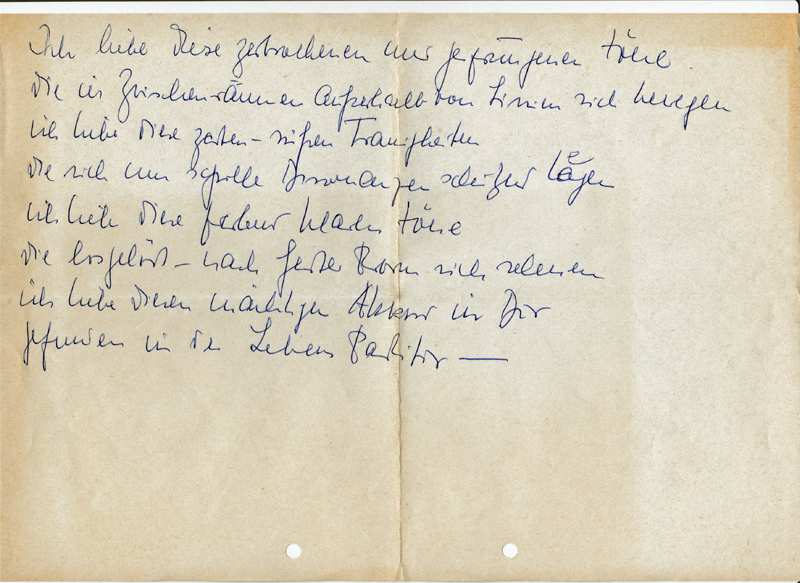 Ich liebe diese zerbrochenen nur gesprungenen Töne
die in Zwischenräumen außerhalb von Linien sich bewegen
ich liebe diese zarten – süßen Traurigkeiten
die sich um schrille Dissonanzen schützend lägen
ich liebe diese Töne
die losgelöst – nach fester Form sich sehnen
ich liebe diesen mächtigen Akkord in Dir
gefunden in der Lebens Partitur —